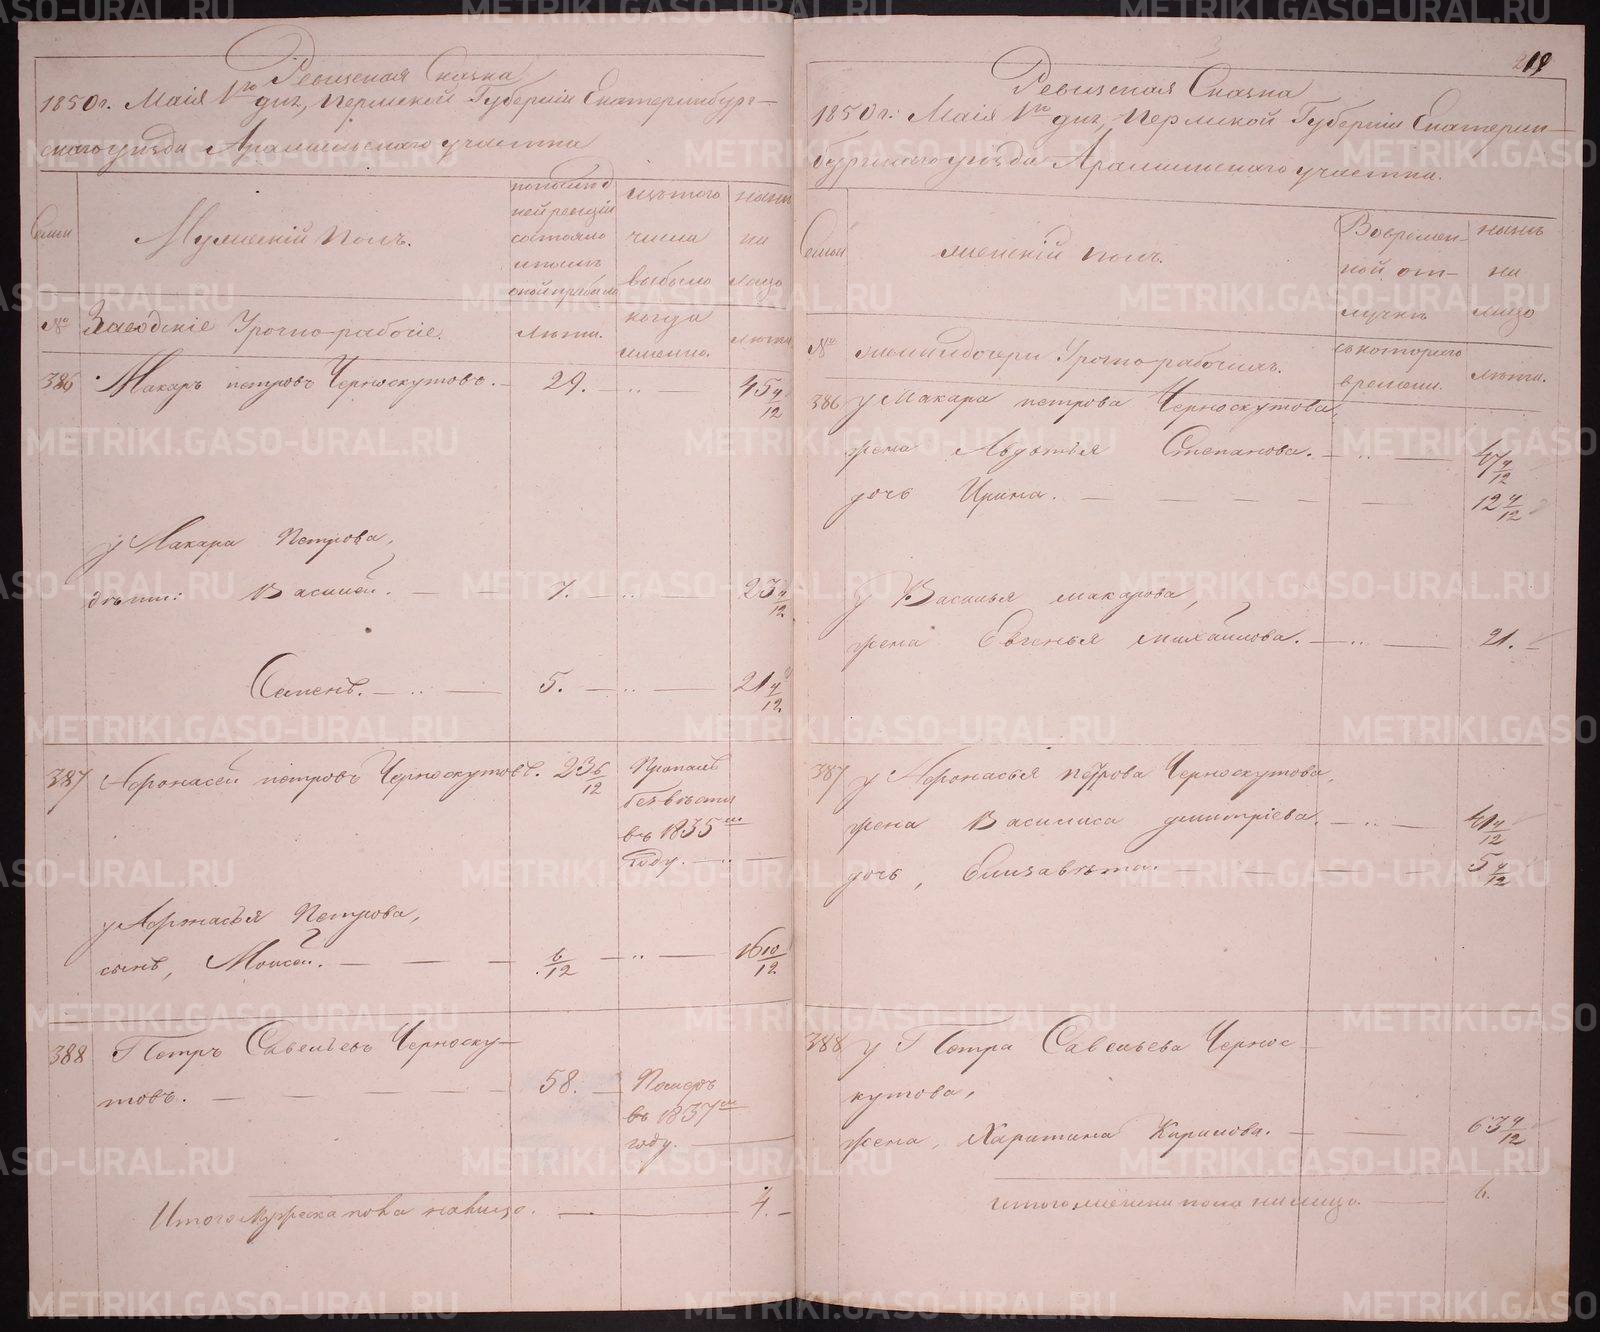 Ревизская Сказка
1850 г. Маія 1го дня, Пермской Губерніи Екатеринбург-
скаго уѣзда Арамильскаго участка
Семьи
Мужескій Полъ.
по послѣд
ней ревизіи
состояло
и послѣ
оной прибыло
изъ того
числа
выбыло
когда
именно.
нынѣ
на
лицо
№
Заводскіе Урочно-рабочіе.
лѣта.
лѣта
386 Макаръ петровъ Черноскутовъ. — 29. 45 4/12
у Макара Петрова,
дѣти: Василей. — — 7. — 23 4/12
Семенъ. — 5. — 21 4/12
387 Афонасей петровъ Черноскутовъ. 23 6/12 Пропалъ
безвѣсти
въ 1835м
году. — —
у Афонасья Петрова,
сынъ, Моисей. — — — 6/12 — 16 10/12
388 Петръ Савельевъ Черноску-
товъ. — — — — 58. — Померъ
въ 1837м
году. —
Итого мужеска пола налицо. — 4. —
219
Ревизская Сказка
1850 г. Маія 1го дня, Пермской Губерніи Екатерин-
бургскаго уѣзда Арамильскаго участка.
Семьи
женскій полъ.
Во времен-
ной от-
лучкѣ
съ котораго
времени.
нынѣ
на
лицо
№
лѣта.
386 у Макара петрова Черноскутова,
жена Авдотья Степанова. — 47 4/12
дочь Ирина. — — — — — 12 4/12
у Василья макарова,
жена Евгенья михайлова. — 21. —
387 у Афонасья петрова Черноскутова,
жена Василиса дмитріева. — 41 4/12
дочь, Елизавѣта. — — — — 5 4/12
388 у Петра Савельева Чернос-
кутова,
жена, Харитина Кирилова. — — 63 4/12
итого женска пола на лицо. — 6.
METRIKI.GASO-URAL.RU